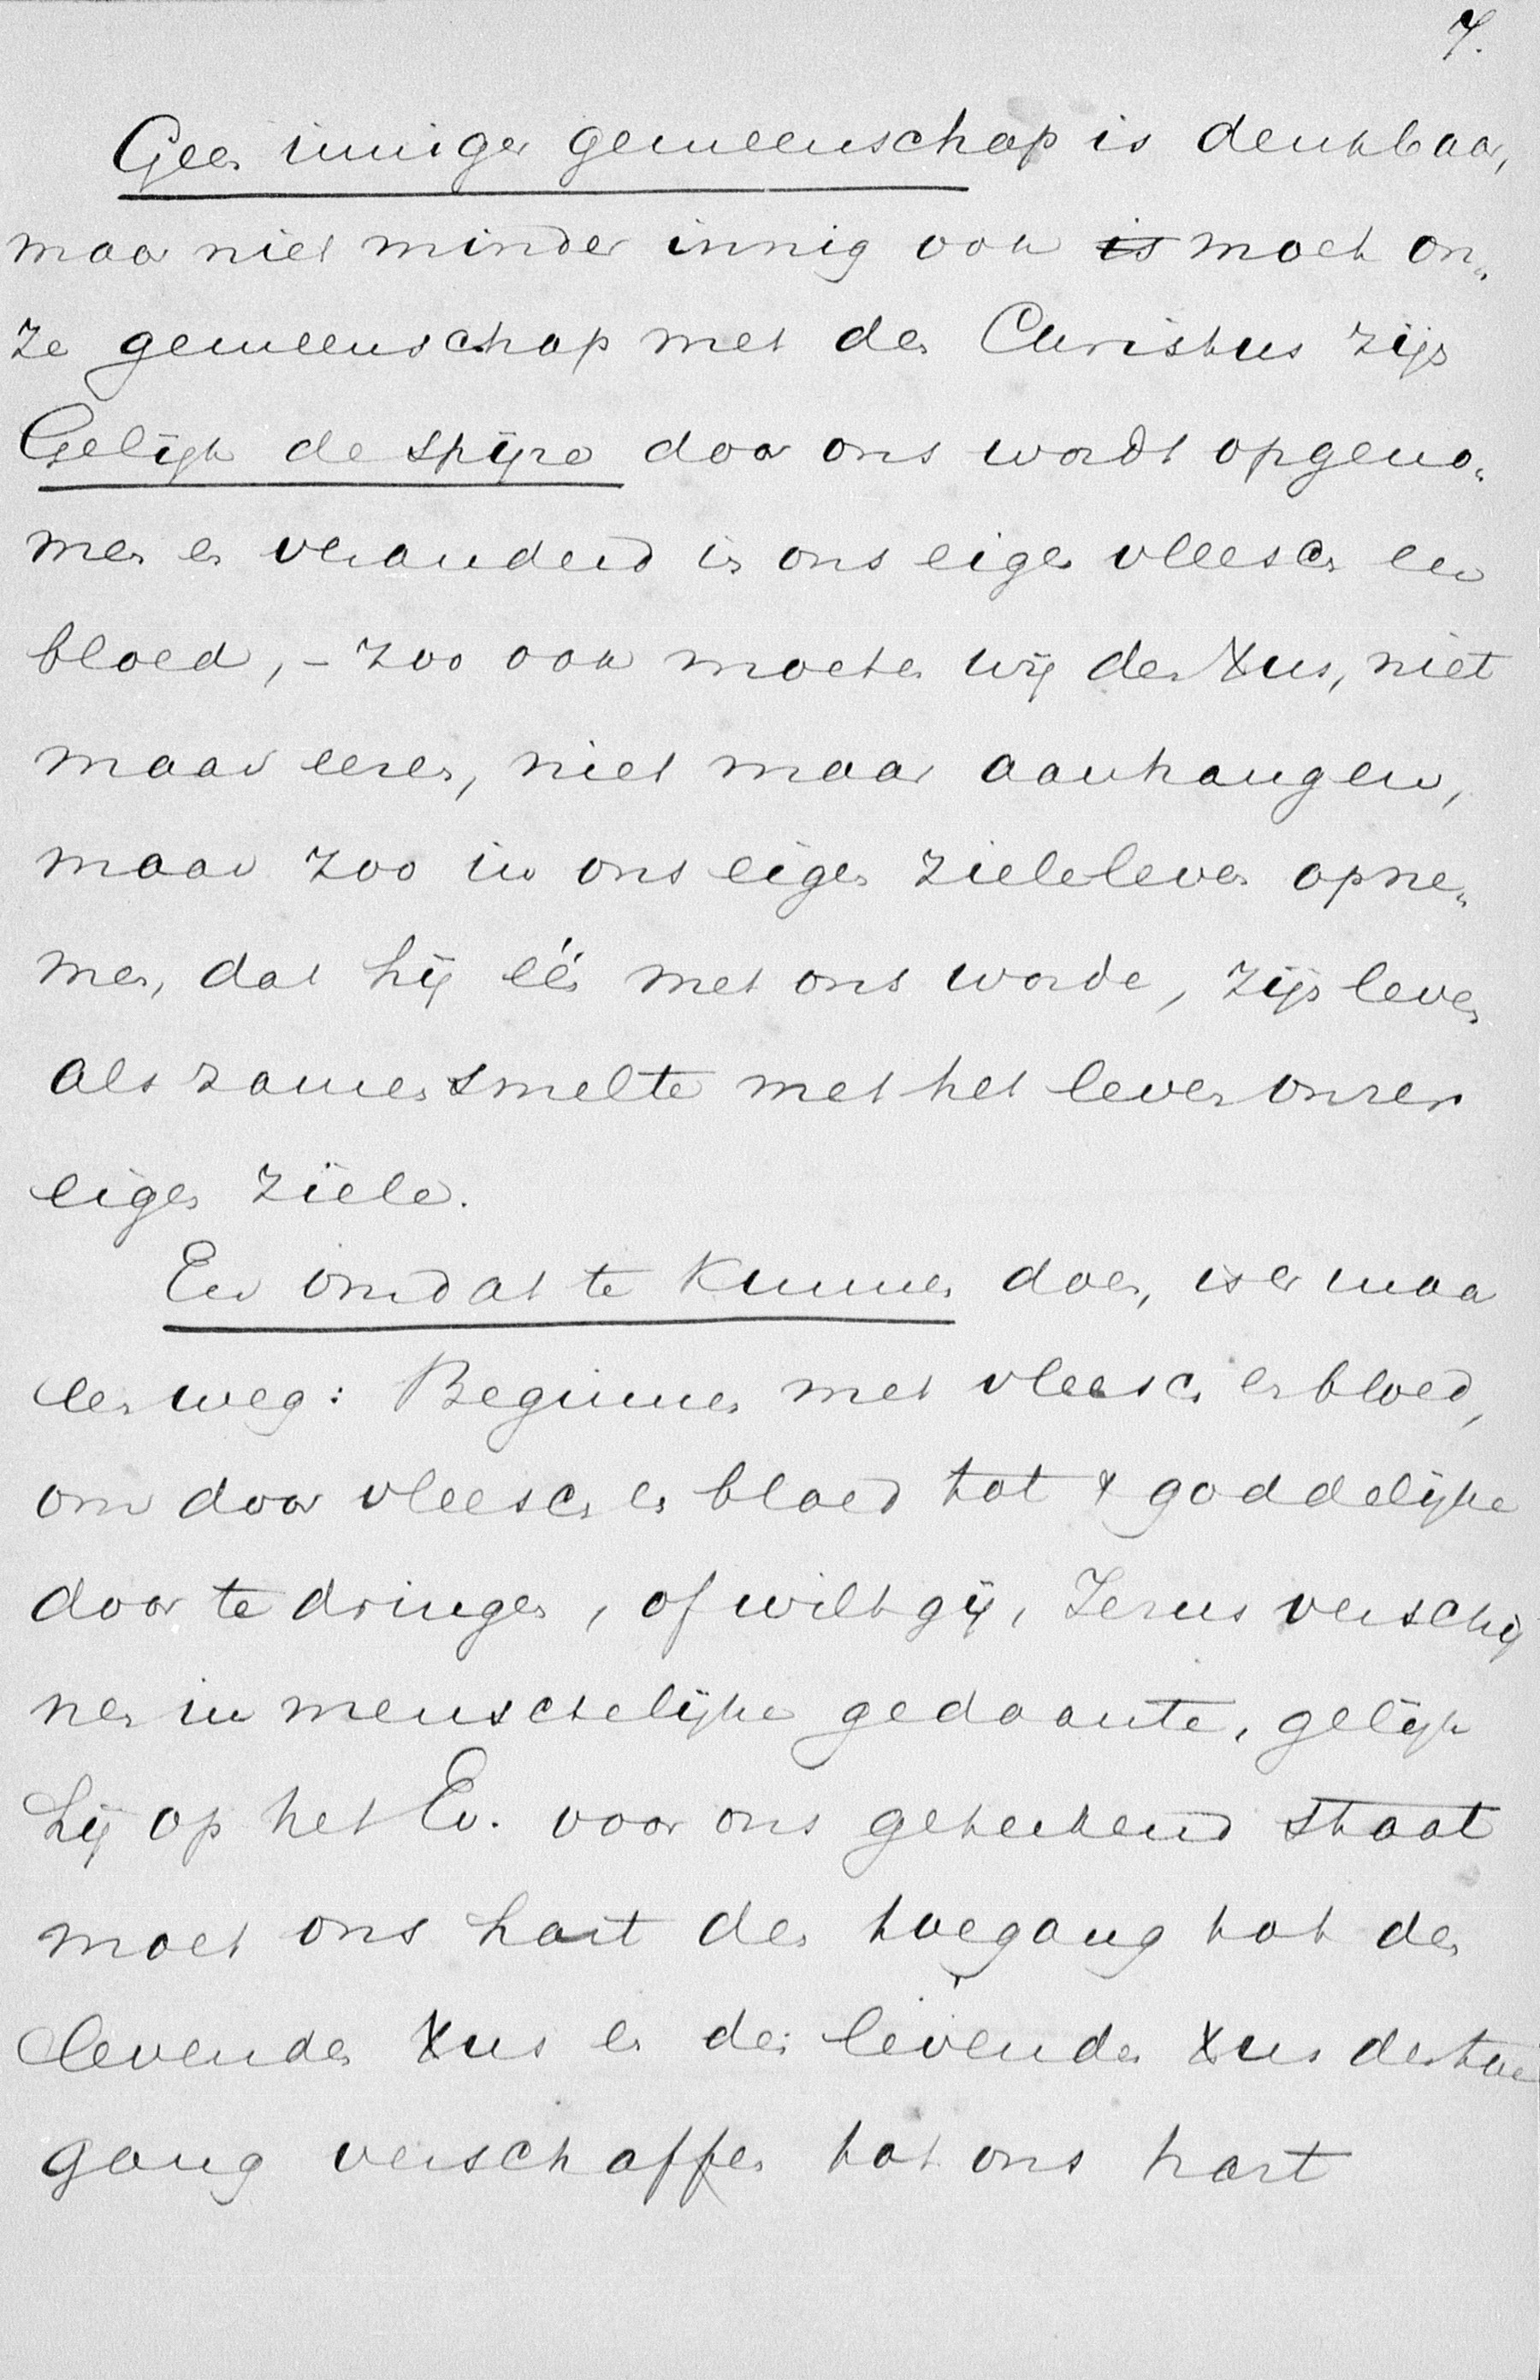 7.
Geen inniger gemeenschap is denkbaar,
maar niet minder innig ook is moet on„
ze gemeenschap met den Christus zijn
Gelijk de spijze door ons wordt opgeno„
men en veranderd in ons eigen vleesch en
bloed, – zoo ook moeten wij den Xus, niet
maar eeren, niet maar aanhangen,
maar zoo in ons eigen zieleleven opne„
men, dat hij één met ons worde, zijn leven
als zamensmelte met het leven onzer
eigen ziele.
En om dat te kunnen doen, is er maar
een weg: Beginnen met vleesch en bloed,
om door vleesch en bloed tot 't goddelijke
door te dringen, of wilt gij, Jezus verschij
nen in menschelijke gedaante, gelijk
hij op het Ev. voor ons geteekend staat
moet ons hart den toegang tot den
levenden Xus en den levenden Xus den toe
gang verschaffen tot ons hart